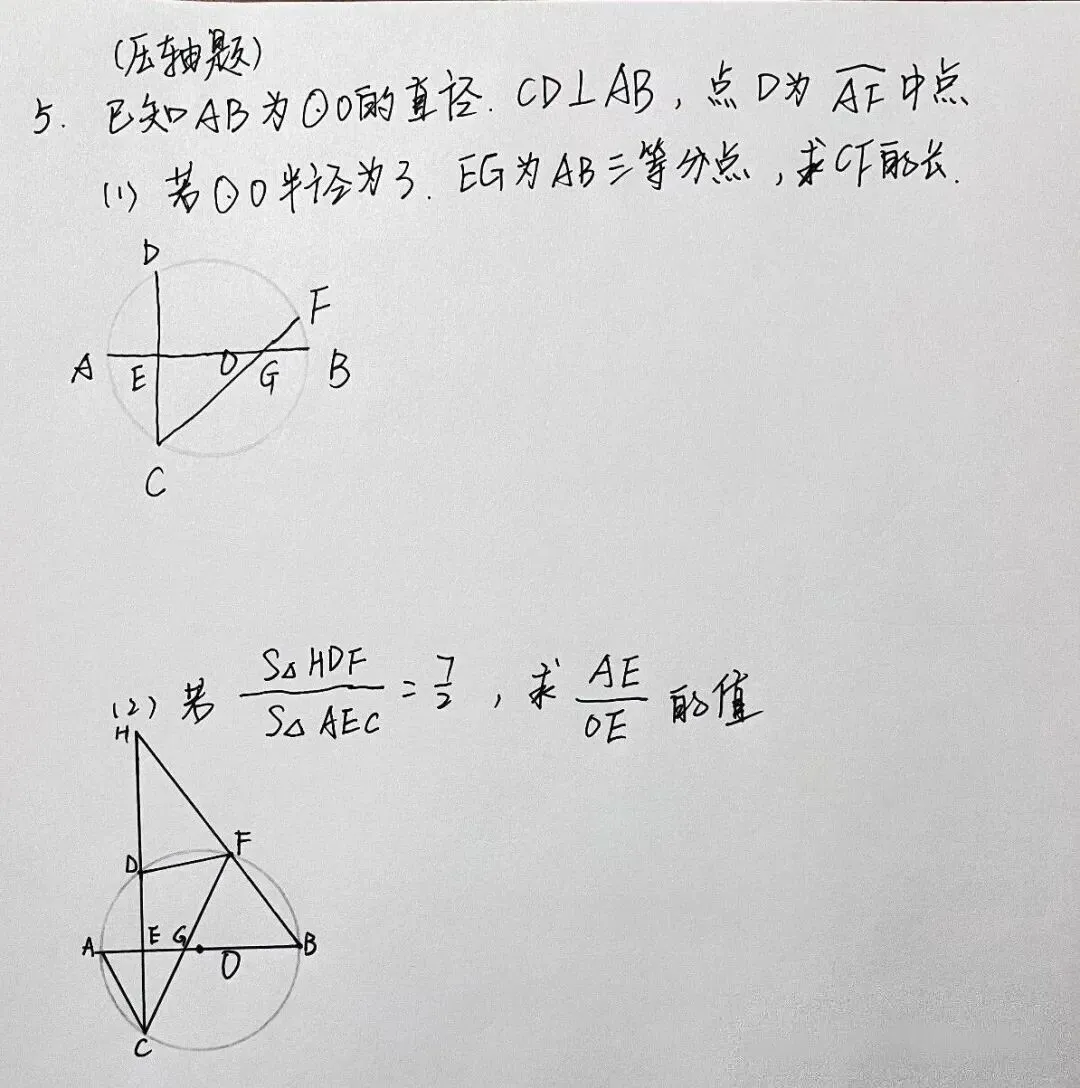 (压轴题)
5. 已知AB为⊙O的直径. CD⊥AB, 点D为 \overset{\frown}{AF} 中点
(1) 若⊙O半径为3. EG为AB三等分点, 求CF的长.
D
F
A E O G B
C
(2) 若 \frac{S△HDF}{S△AEC} = \frac{7}{2} , 求 \frac{AE}{OE} 的值
H
F
D
A E G O B
C